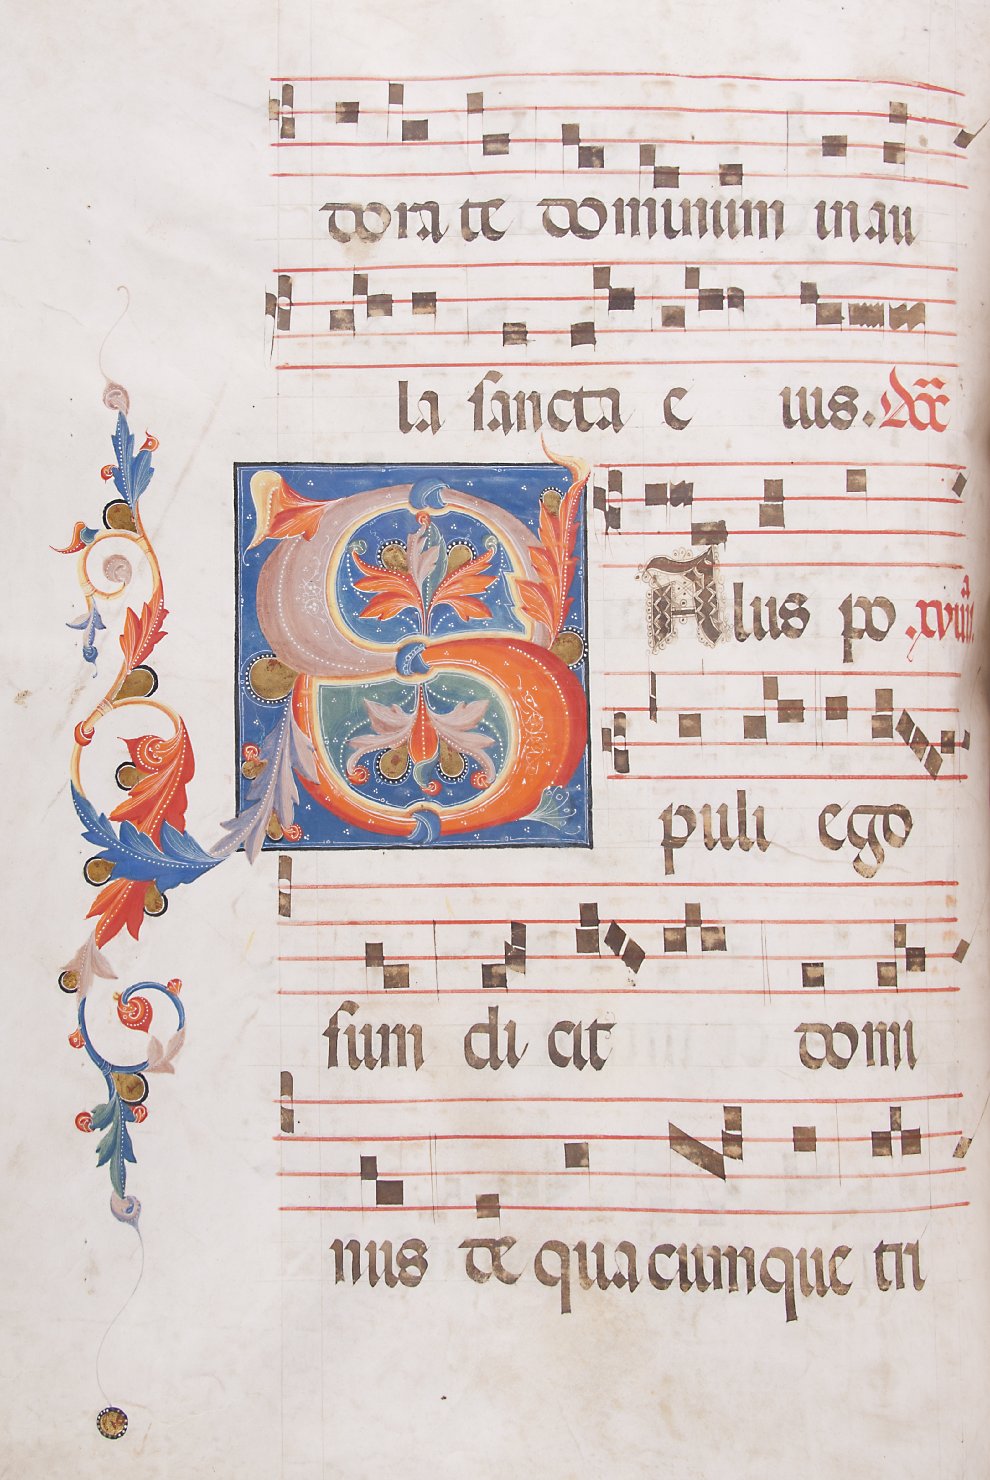 dorate dominum in au
la sancta eius. Dnica
SAlus po .xviiii.
puli ego
sum dicit domi
nus de quacumque tri